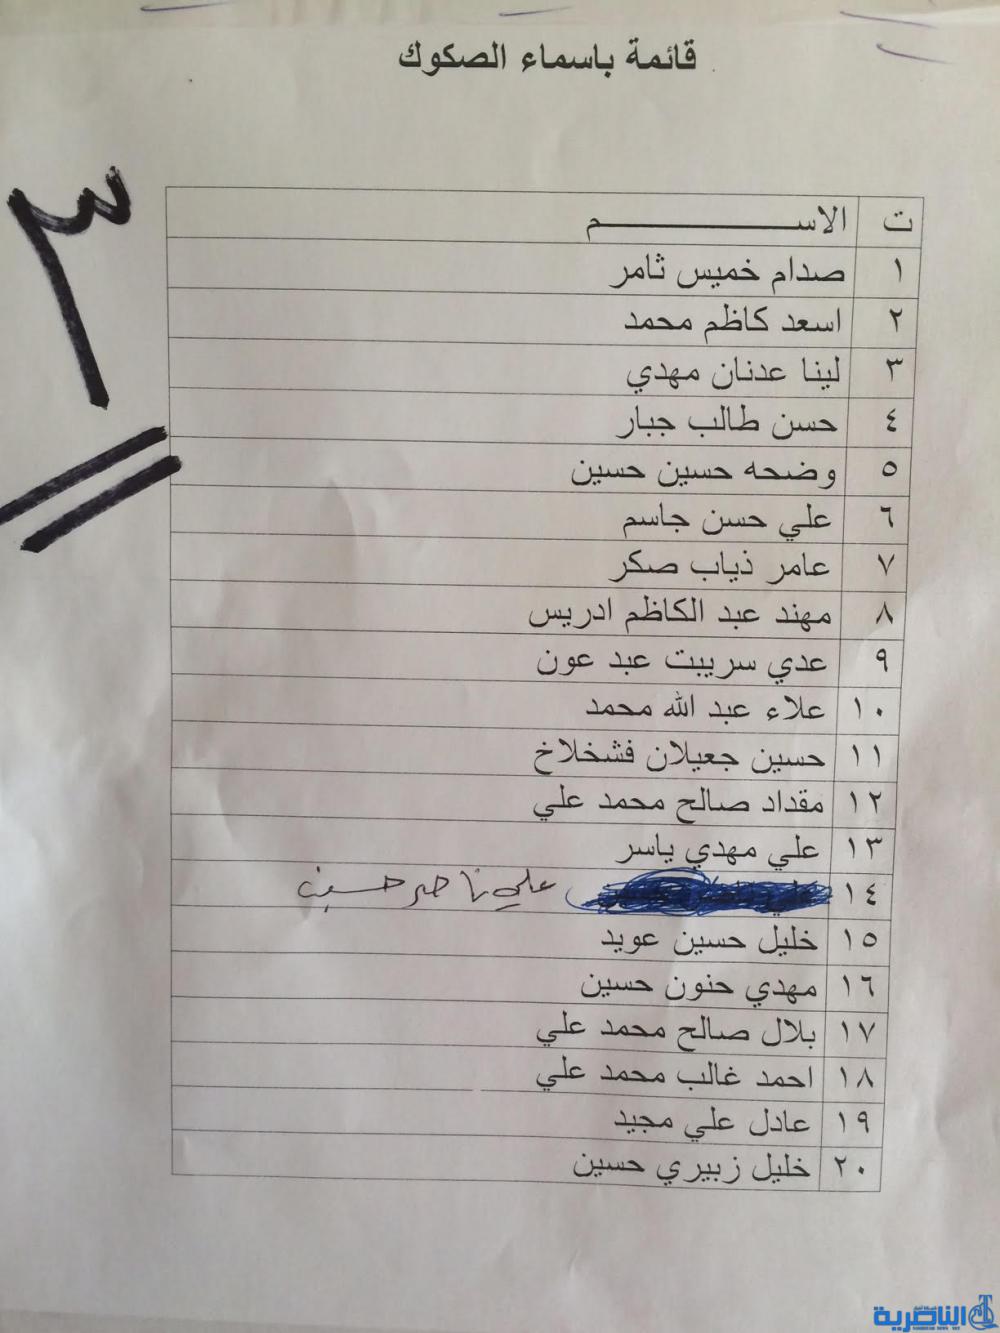 قائمة باسماء الصكوك
٣
ت الاســـــــــــــــــم
١ صدام خميس ثامر
٢ اسعد كاظم محمد
٣ لينا عدنان مهدي
٤ حسن طالب جبار
٥ وضحه حسين حسين
٦ علي حسن جاسم
٧ عامر ذياب صكر
٨ مهند عبد الكاظم ادريس
٩ عدي سريبت عبد عون
١٠ علاء عبد الله محمد
١١ حسين جعيلان فشخلاخ
١٢ مقداد صالح محمد علي
١٣ علي مهدي ياسر
١٤ علي ناصر حسين
١٥ خليل حسين عويد
١٦ مهدي حنون حسين
١٧ بلال صالح محمد علي
١٨ احمد غالب محمد علي
١٩ عادل علي مجيد
٢٠ خليل زبيري حسين
الناصرية